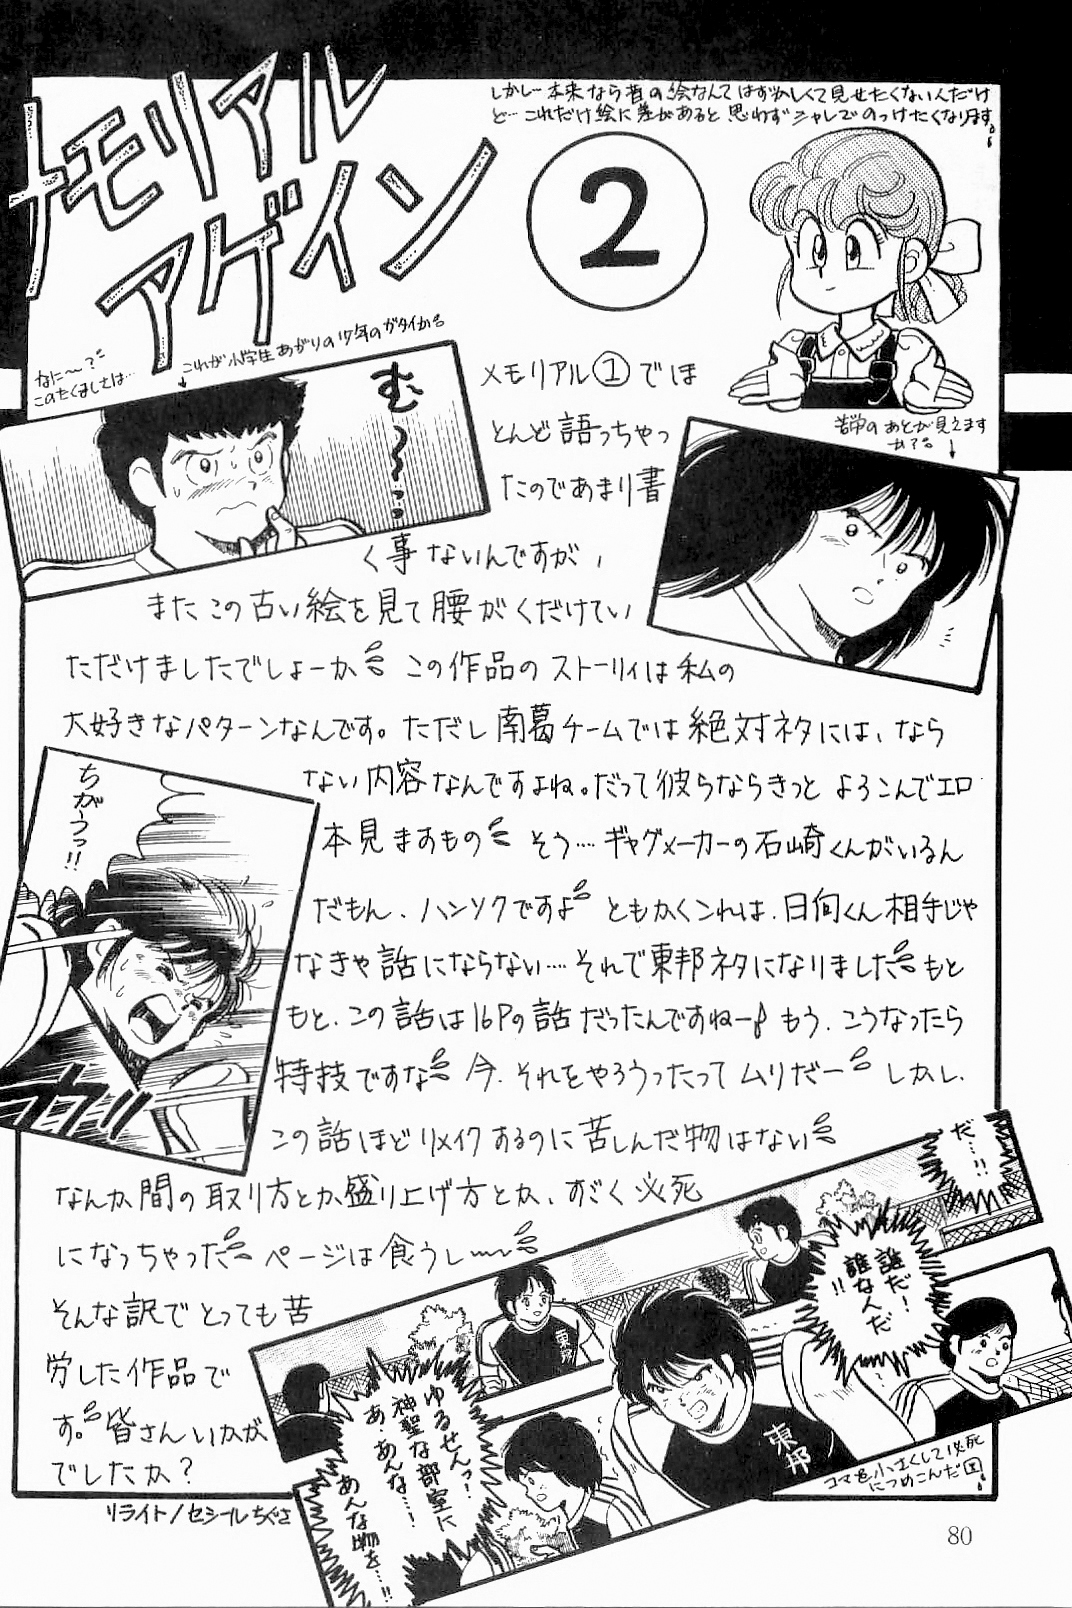 メモリアル
アゲイン
2
しかし…本来なら昔の絵なんてはずかしくて見せたくないんだけ
ど…これだけ絵に差があると思わずシャレでのっけたくなります。
なに〜?
このたくましさは…
これが小学生あがりの17年のガタイか。
む〜…
メモリアル①でほ
とんど語っちゃっ
たのであまり書
く事ないんですが、
またこの古い絵を見て腰がくだけてい
ただけましたでしょーか この作品のストーリィは私の
大好きなパターンなんです。ただし南葛チームでは絶対ネタには、なら
ない内容なんですよね。だって彼らならきっとよろこんでエロ
本見ますもの そう…ギャグメーカーの石崎くんがいるん
だもん、ハンソクですよ ともかくこれは、日向くん相手じゃ
なきゃ話にならない…それで東邦ネタになりました もと
もと、この話は16Pの話だったんですねー もう、こうなったら
特技ですな 今、それをやろうったってムリだー しかし、
この話ほどリメイクするのに苦しんだ物はない
なんか間の取り方とか盛り上げ方とか、すごく必死
になっちゃった ページは食うし〜
そんな訳でとっても苦
労した作品で
す。皆さんいかが
でしたか?
リライト/セシールちぐさ
苦労のあとが見えます
か?。
ちがうっ!!
だ…!!
誰だ!
誰なんだ
!!
東邦
東邦
ゆるせんっ…!
神聖な部室に
あ・あんな…!
あんな物を…!!
コマを小さくして必死
につめこんだ図
80